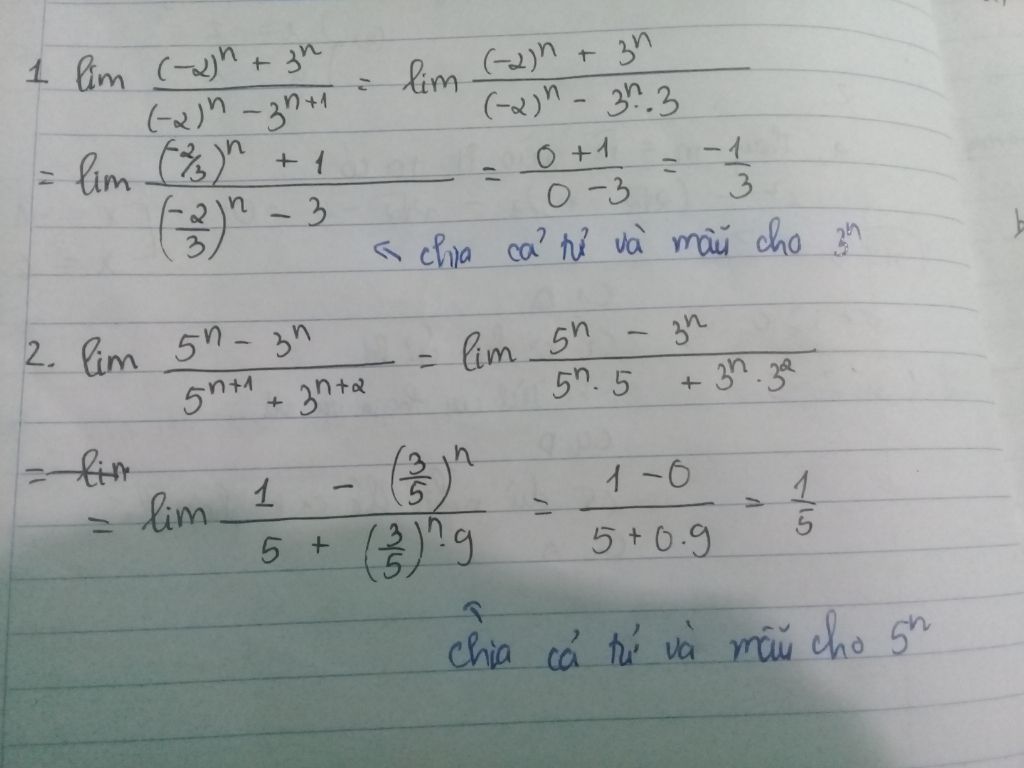 1 lim ((-2)^n + 3^n)/((-2)^n - 3^{n+1}) = lim ((-2)^n + 3^n)/((-2)^n - 3^n.3)
= lim ((-2/3)^n + 1)/((-2/3)^n - 3) = (0 + 1)/(0 - 3) = -1/3
↖ chia cả tử và mẫu cho 3^n
2. lim (5^n - 3^n)/(5^{n+1} + 3^{n+2}) = lim (5^n - 3^n)/(5^n.5 + 3^n.3^2)
= lim
= lim (1 - (3/5)^n)/(5 + (3/5)^n.9) = (1 - 0)/(5 + 0.9) = 1/5
↖ chia cả tử và mẫu cho 5^n